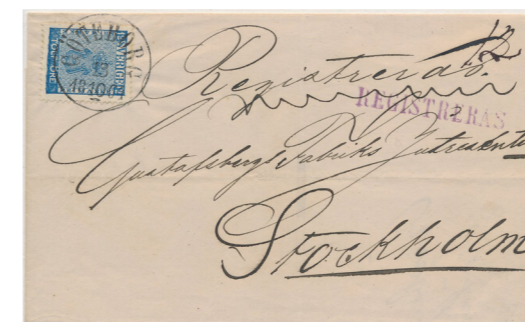 GÖTEBORG
TOLF ÖRE
SVERIGE
Registreras.
REGISTRERAS
Gustafsbergs Fabriks Intressenter
Stockholm